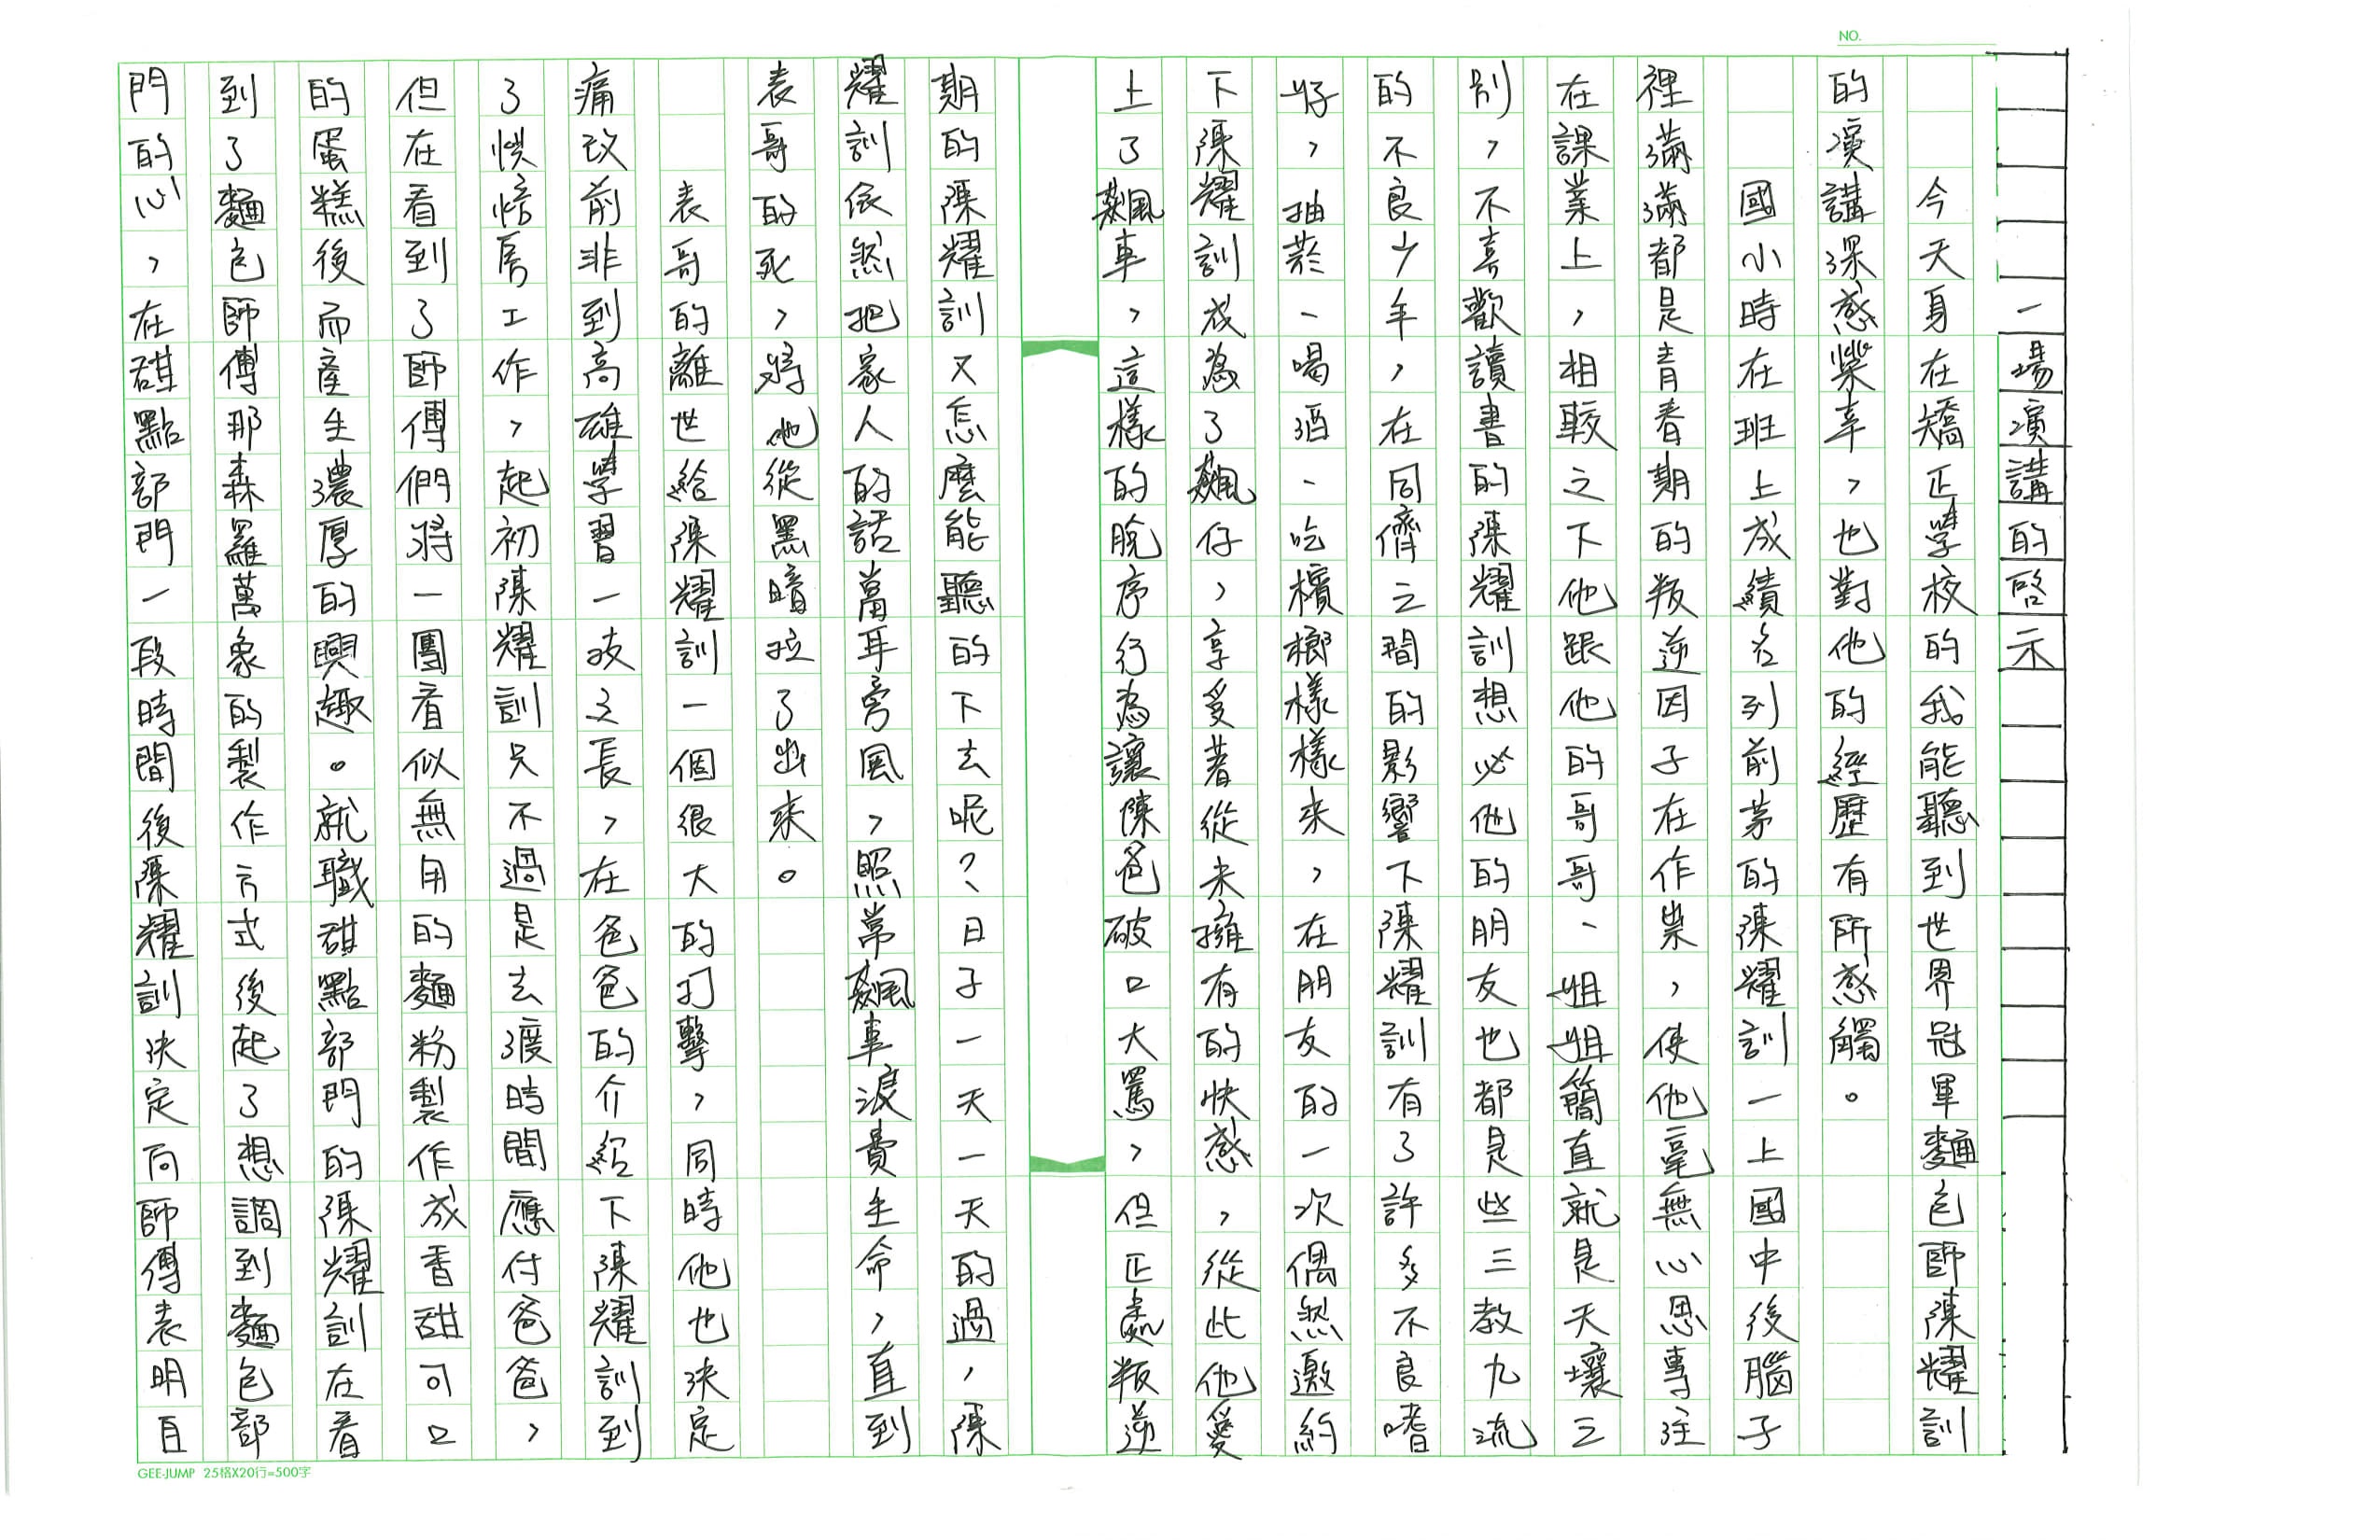 NO.
一場演講的啓示
今天身在矯正學校的我能聽到世界冠軍麵包師陳耀訓
的演講深感榮幸，也對他的經歷有所感觸。
國小時在班上成績名列前茅的陳耀訓一上國中後腦子
裡滿滿都是青春期的叛逆因子在作祟，使他毫無心思專注
在課業上，相較之下他跟他的哥哥、姐姐簡直就是天壤之
別，不喜歡讀書的陳耀訓想必他的朋友也都是些三教九流
的不良少年，在同儕之間的影響下陳耀訓有了許多不良嗜
好，抽菸、喝酒、吃檳榔樣樣來，在朋友的一次偶然邀約
下陳耀訓成為了飆仔，享受著從未擁有的快感，從此他愛
上了飆車，這樣的脫序行為讓陳爸破口大罵，但正處叛逆
期的陳耀訓又怎麼能聽的下去呢？日子一天一天的過，陳
耀訓依然把家人的話當耳旁風，照常飆車浪費生命，直到
表哥的死，將他從黑暗拉了出來。
表哥的離世給陳耀訓一個很大的打擊，同時他也決定
痛改前非到高雄學習一技之長，在爸爸的介紹下陳耀訓到
了烘焙房工作，起初陳耀訓只不過是去渡時間應付爸爸，
但在看到了師傅們將一團看似無用的麵粉製作成香甜可口
的蛋糕後而產生濃厚的興趣。就職甜點部門的陳耀訓在看
到了麵包師傅那森羅萬象的製作方式後起了想調到麵包部
門的心，在甜點部門一段時間後陳耀訓決定向師傅表明自
GEE-JUMP 25格X20行=500字